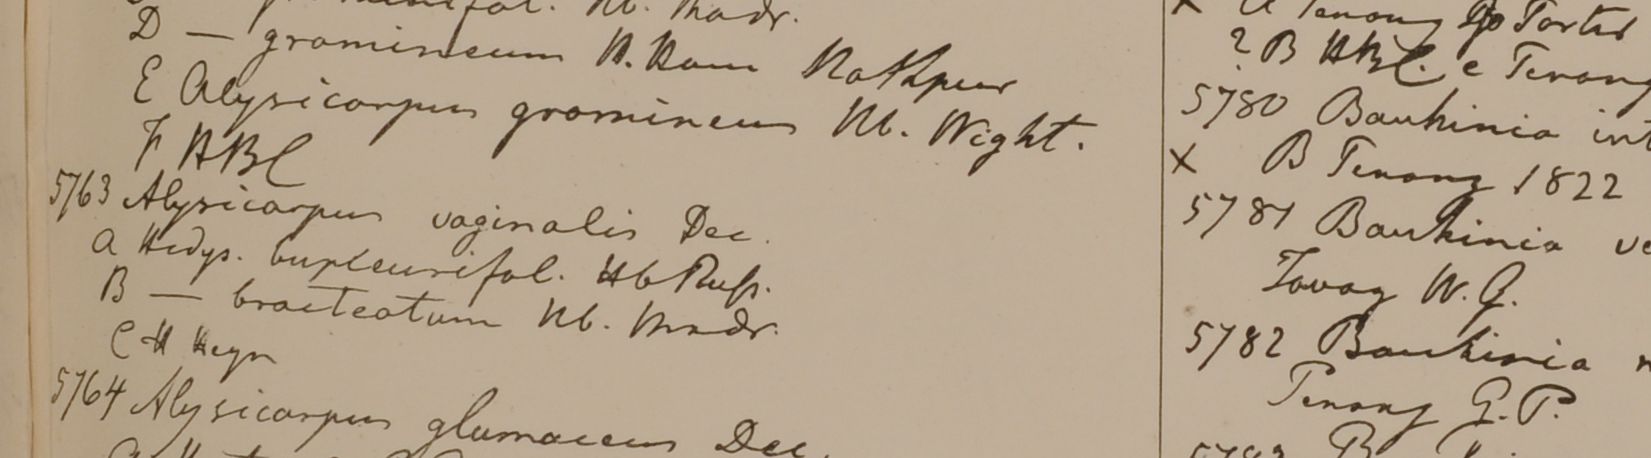 fol. Hb. Madr.
D — gramineum H. Ham Nathpur
E Alysicarpus gramineus Hb. Wight.
F HBC
5763 Alysicarpus vaginalis Dec.
A Hedys. bupleurifol. Hb Russ.
B — bracteatum Hb. Madr.
C H Heyn
5764 Alysicarpus glumaceus Dec.
A Penang Porter
? B HBC. e Penang
5780 Bauhinia int
X B Penang 1822
5781 Bauhinia ve
Tavay W. G.
5782 Bauhinia
Penang G. P.